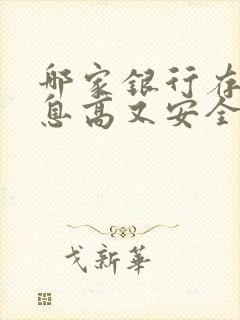 哪家银行存
息高又安全
戈新华